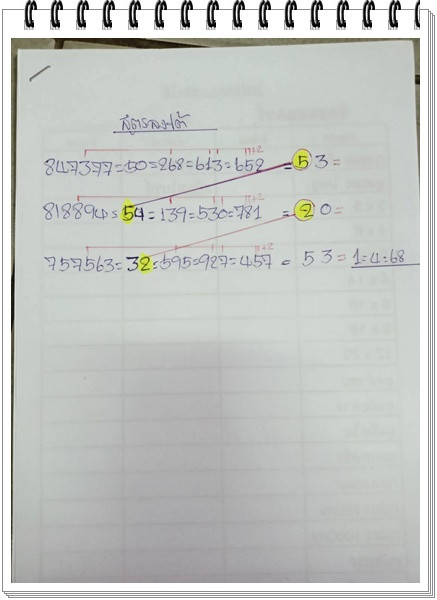 สูตร
+2
847377=50=268=613=652 = 53=
+2
818894=54=139=530=781 = 20=
+2
757563=32=595=927=457 = 53= 1=4=68